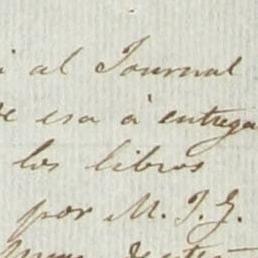 i al Journal
de esa à entrega
los libros
por M. J. G.